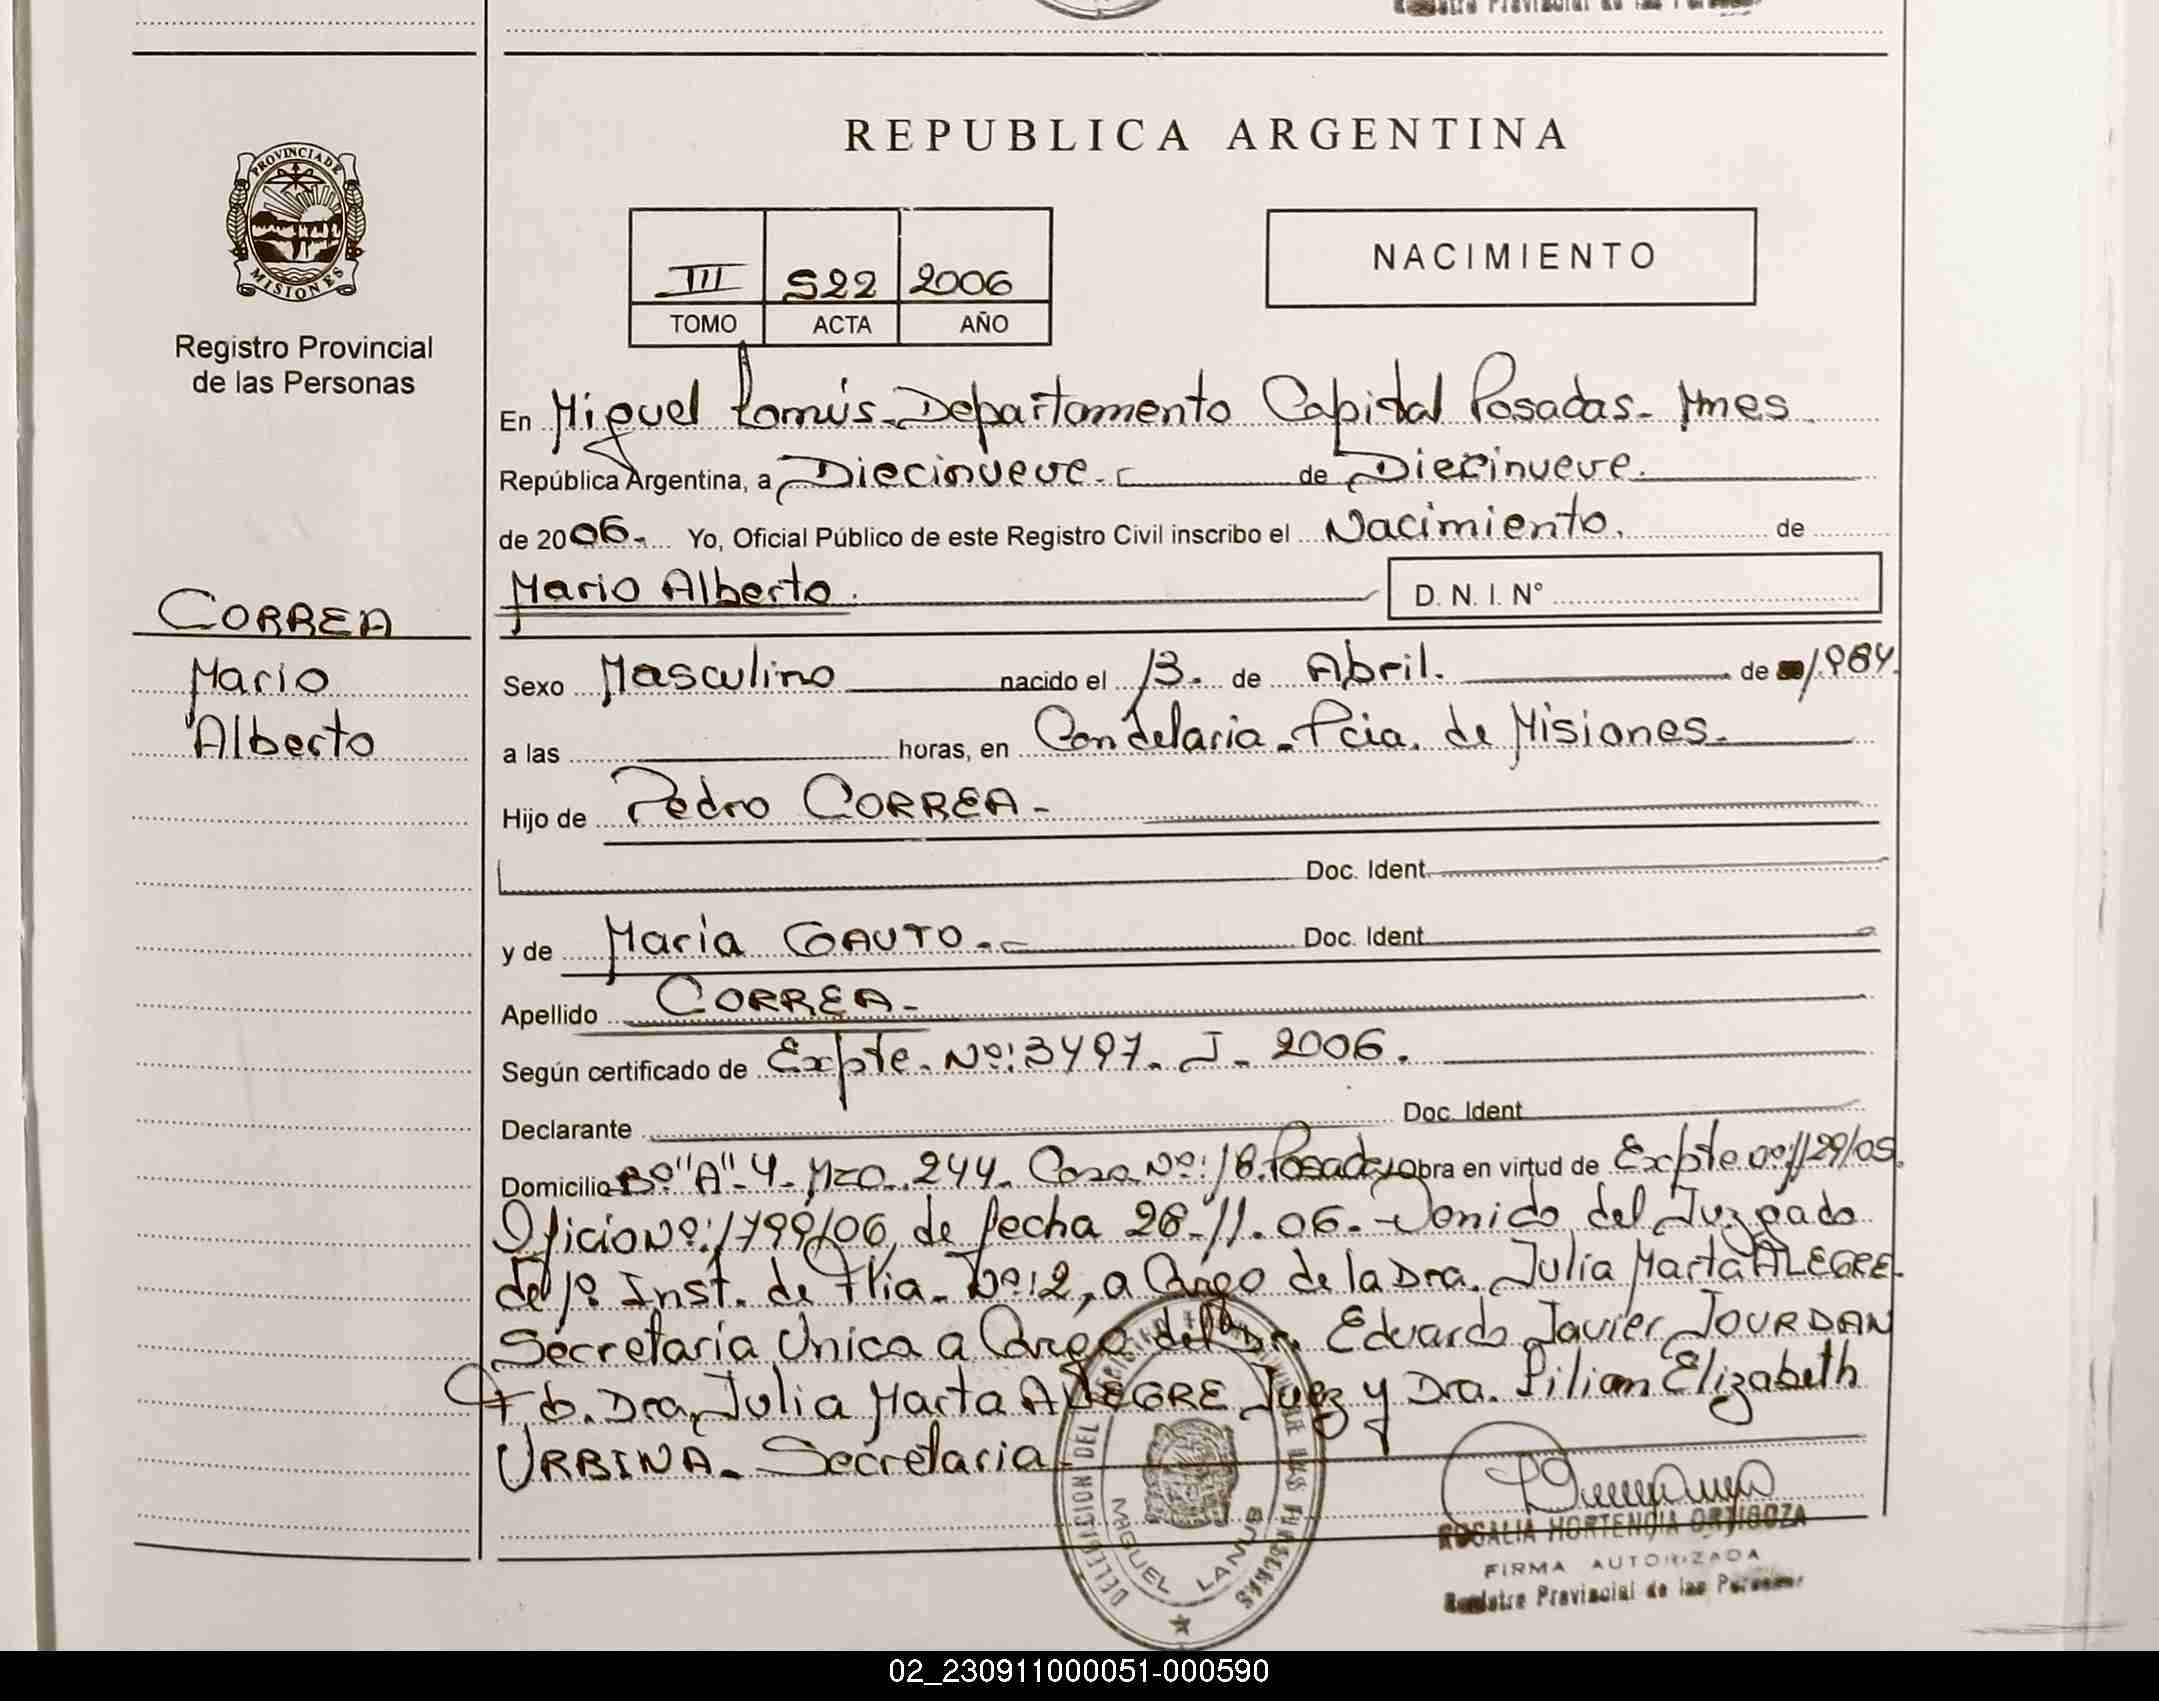 REPUBLICA ARGENTINA
PROVINCIA DE
MISIONES
Registro Provincial
de las Personas
III 522 2006
TOMO ACTA AÑO
NACIMIENTO
En Miguel Lanús - Departamento Capital Posadas - Mnes
República Argentina, a Diecinueve. de Diecinueve.
de 2006. Yo, Oficial Público de este Registro Civil inscribo el Nacimiento. de
Mario Alberto. D. N. I. N°
CORREA
Mario
Alberto
Sexo Masculino nacido el 13. de Abril. de 1984.
a las horas, en Candelaria - Pcia. de Misiones.
Hijo de Pedro CORREA -
Doc. Ident.
y de María GAUTO. - Doc. Ident.
Apellido CORREA -
Según certificado de Expte. Nº: 3497. J - 2006.
Declarante Doc. Ident.
Domicilio Bº "A" - 4 - Mza. 244. Casa Nº: 18. Posadas obra en virtud de Expte nº: 1129/05.
Oficio Nº: 1799/06, de fecha 28 - 11. 06. - del Juzgado
de 1º. Inst. de Flia. Nº: 2, a Cargo de la Dra. Julia Marta ALEGRE.
Secretaría Unica a Cargo del Dr. Eduardo Javier JOURDAN
Fdo. Dra. Julia Marta ALEGRE Juez y Dra. Lilian Elizabeth
URBINA. Secretaria.
MIGUEL LANUS
ROSALIA HORTENCIA ORTIGOZA
FIRMA AUTORIZADA
Registro Provincial de las Personas
02_230911000051-000590